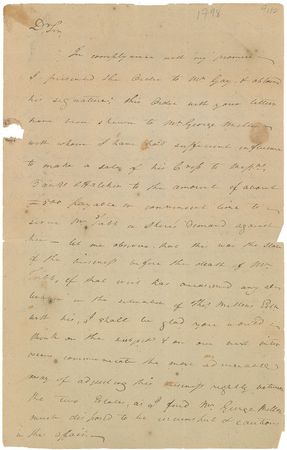 1798
Dr Sir
In complyance with my promise
I presented the Order to Mr Gay, & obtained
his signature; this Order with your letters
have been shewn to Mr George Mutter
with whom I have had sufficient influence
to make a sale of his Crop to Messrs
to the amount of about
payable in convenient time to
secure Mr Tabb or Shore's demand against
him — let me observe that this was the State
of the business before the death of Mr
Tabb, if that event has occasioned any
in the situation of Thos
with his, I shall be glad you would
think on the subject & on our next
communicate the most adviseable
way of adjusting this business rightly between
the two Estates, as I find Mr George
much disposed to be circumspect & cautious
in the affair —